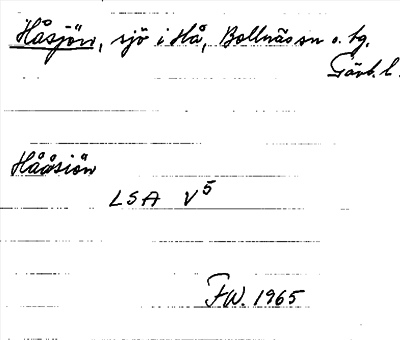 Håsjön, sjö i Hå, Bollnäs sn o. tg.
Gävb. l.
Hååsiön
LSA V5
FW. 1965